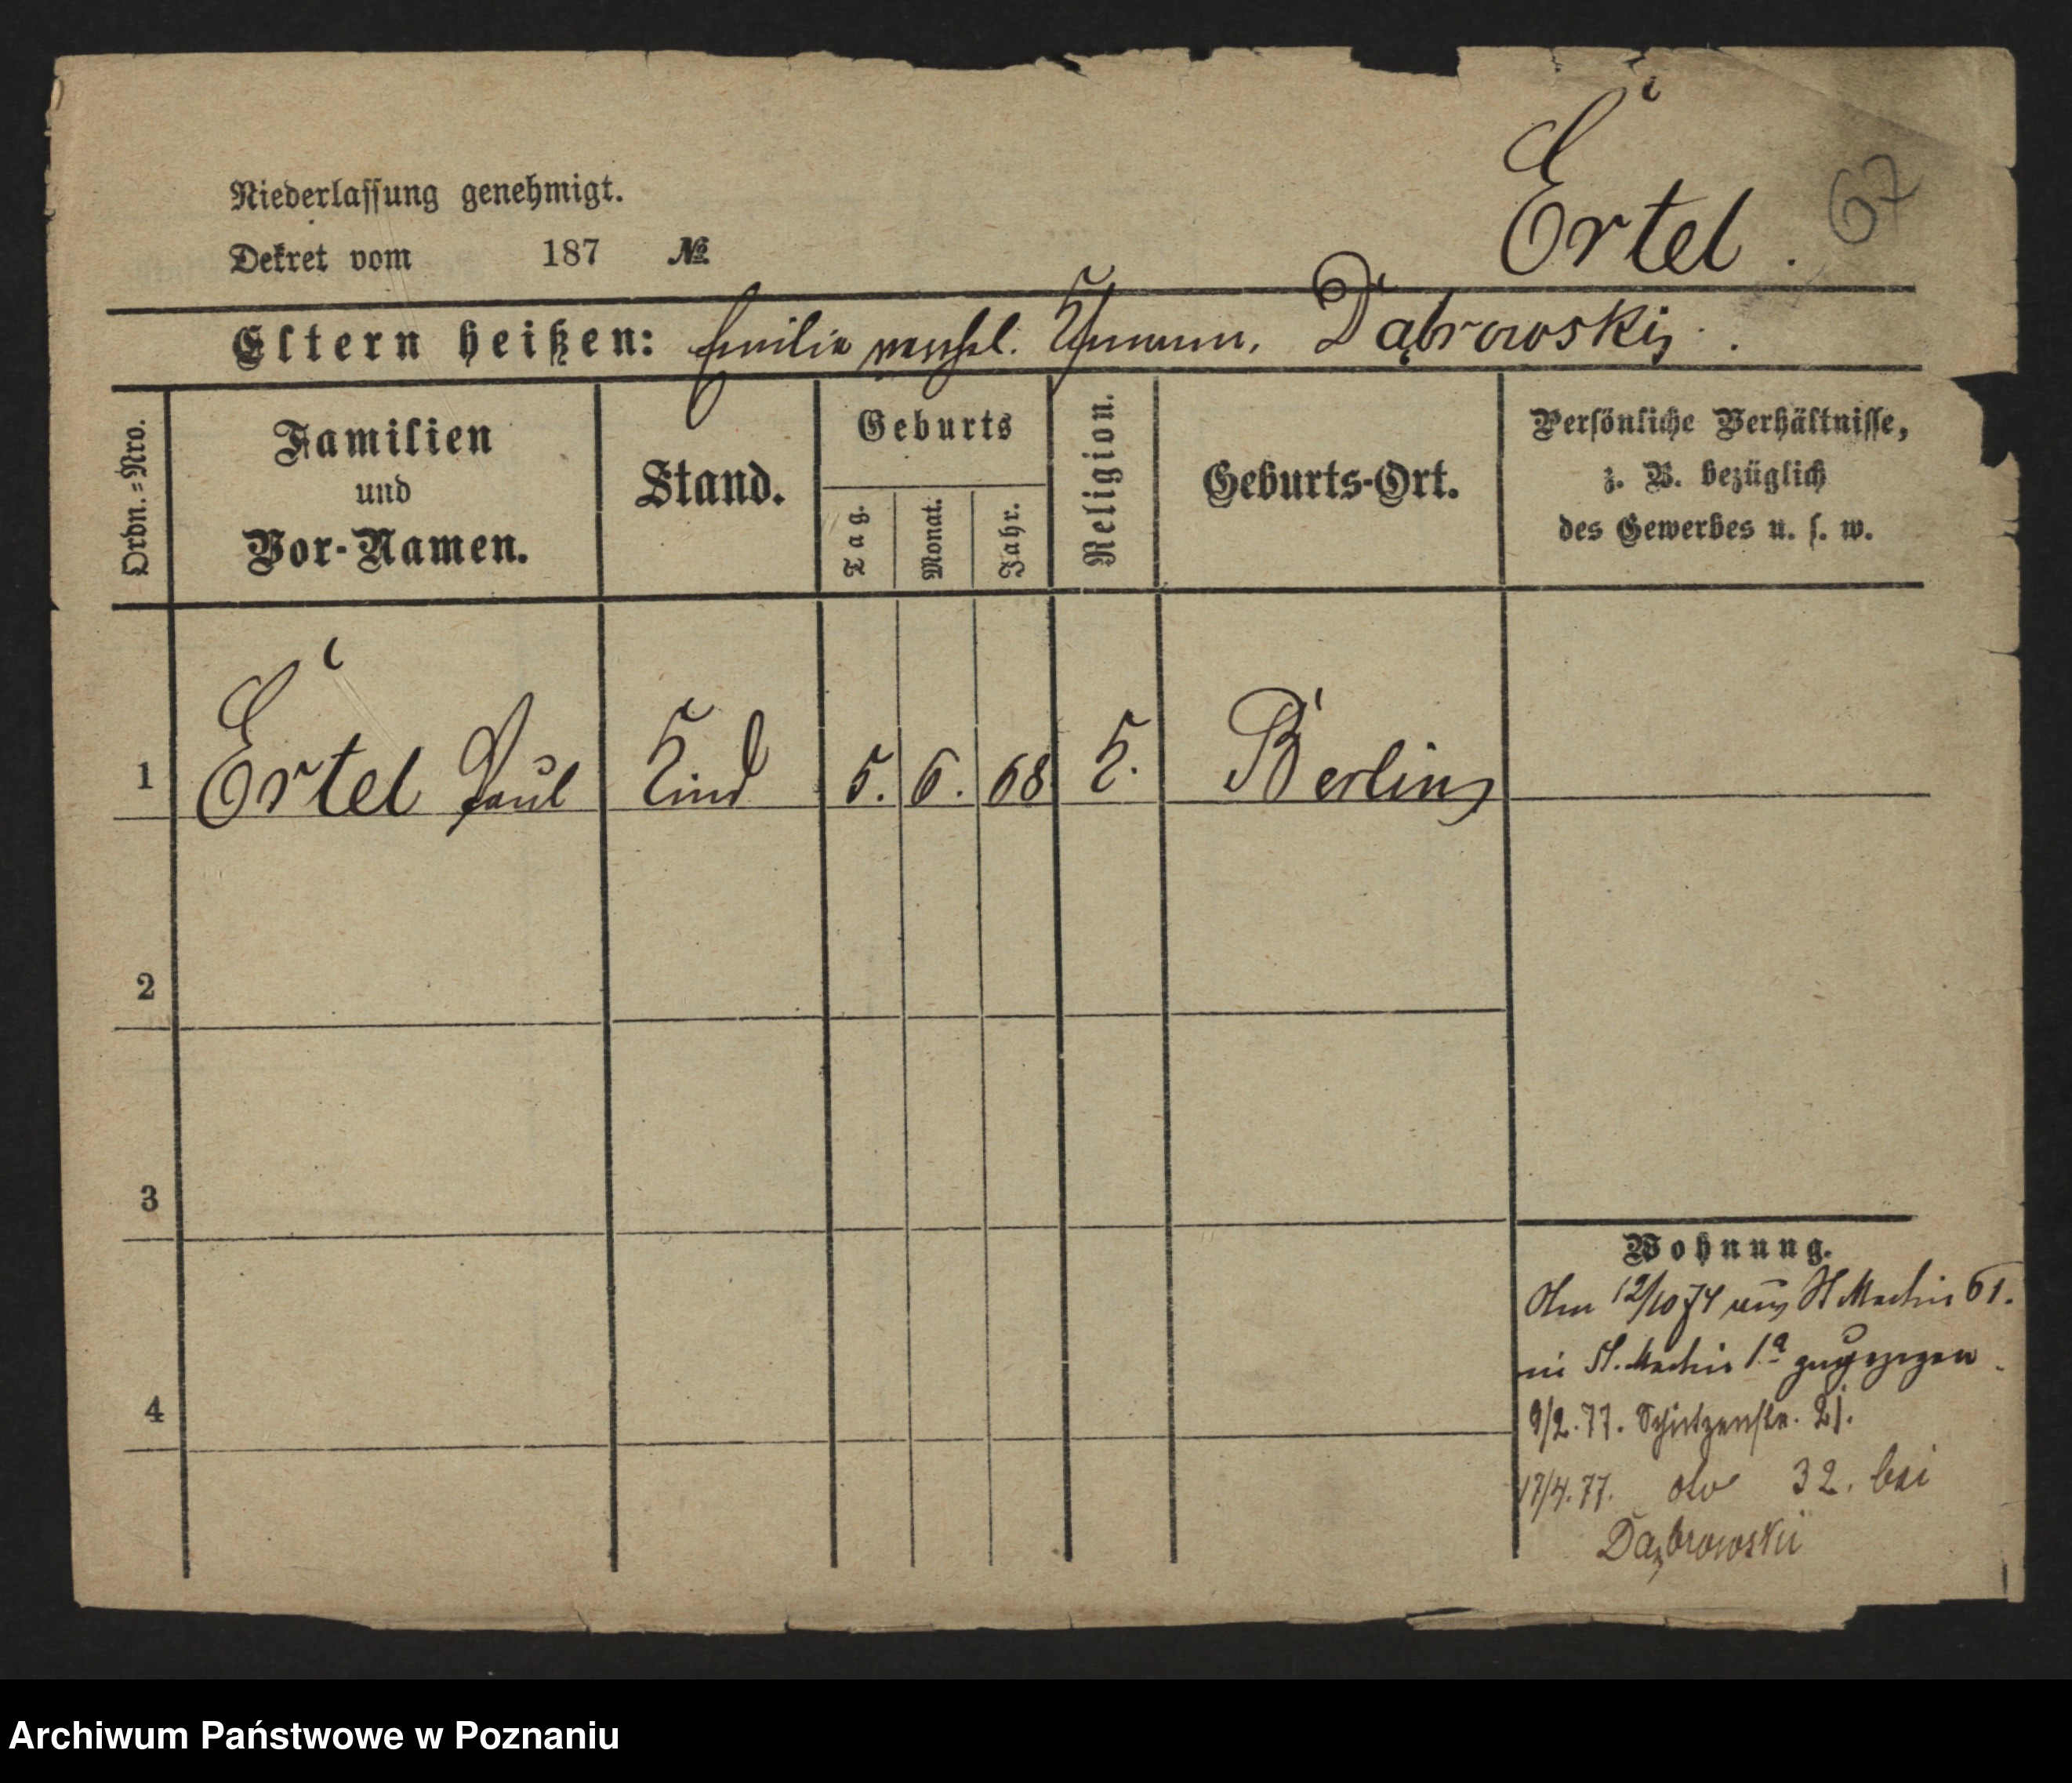 Ertel.
67
Niederlassung genehmigt.
Dekret vom 187 №
Eltern heißen: Emilie verehel. Dąbrowski.
Ordn.-Nro.
Familien
und
Vor-Namen.
Stand.
Geburts
Tag.
Monat.
Jahr.
Religion.
Geburts-Ort.
Persönliche Verhältnisse,
z. B. bezüglich
des Gewerbes u. s. w.
1 Ertel Paul Kind 5. 6. 68 K. Berlin
2
3
4
Wohnung.
Am 12/10 74 aus St Martin 61.
St. Martin 1a zugezogen
9/2. 77. Schützenstr. 21.
17/4. 77. dto 32. bei
Dąbrowski
Archiwum Państwowe w Poznaniu